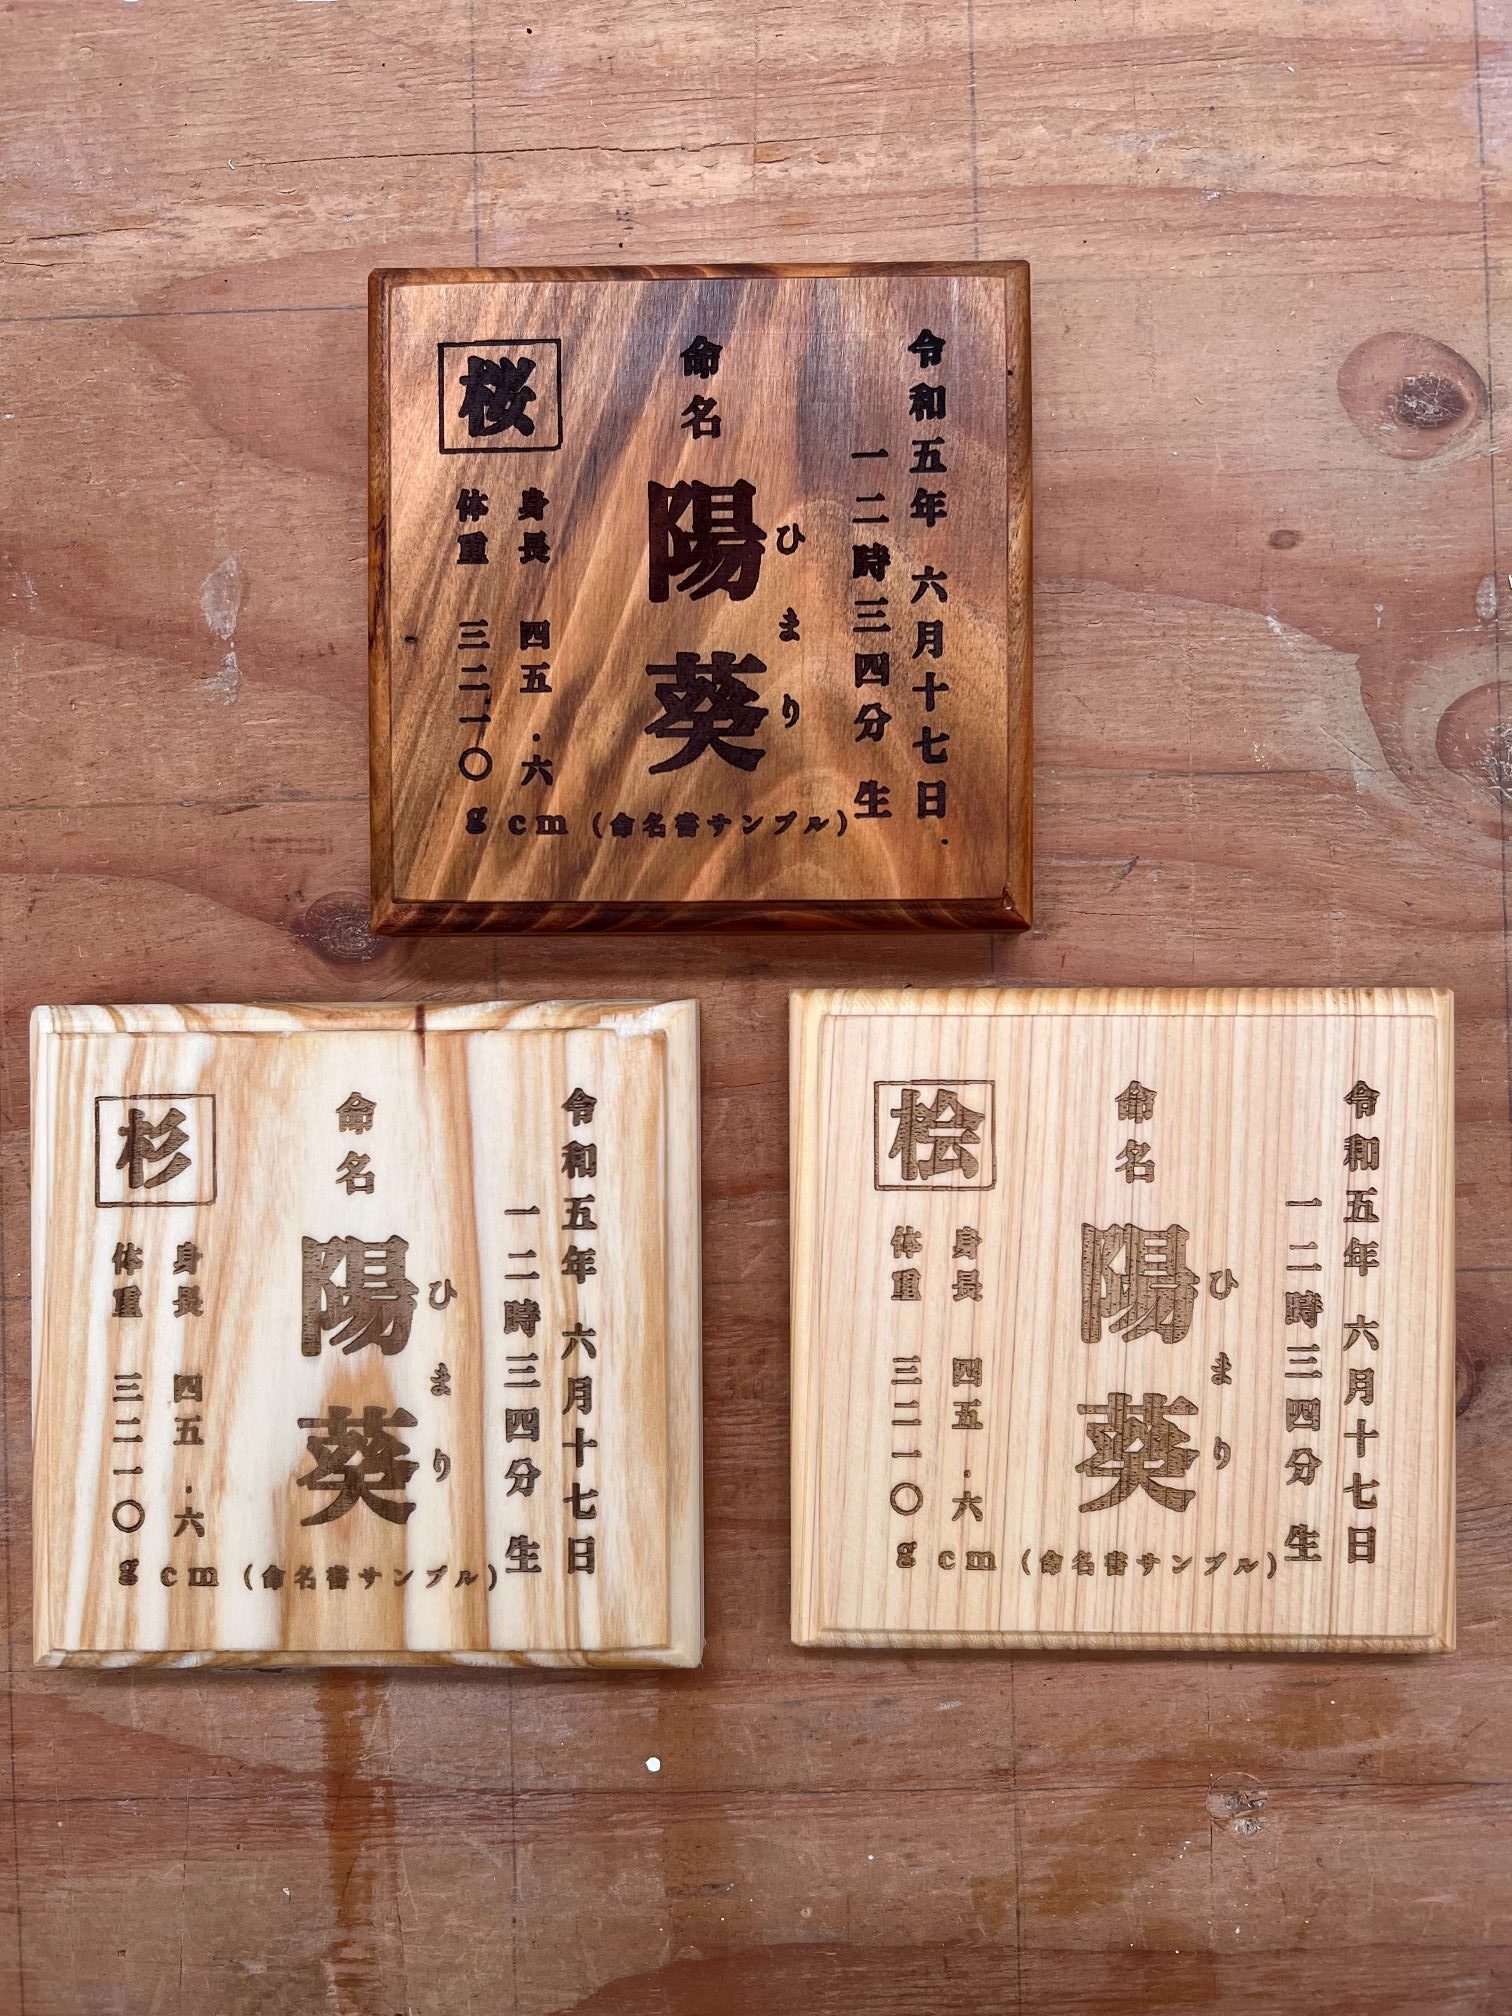 令和五年 六月十七日
一二時三四分 生
命名
陽葵
ひまり
(命名書サンプル)
桜
身長 四五.六cm
体重 三二一〇g
令和五年 六月十七日
一二時三四分 生
命名
陽葵
ひまり
(命名書サンプル)
杉
身長 四五.六cm
体重 三二一〇g
令和五年 六月十七日
一二時三四分 生
命名
陽葵
ひまり
(命名書サンプル)
桧
身長 四五.六cm
体重 三二一〇g